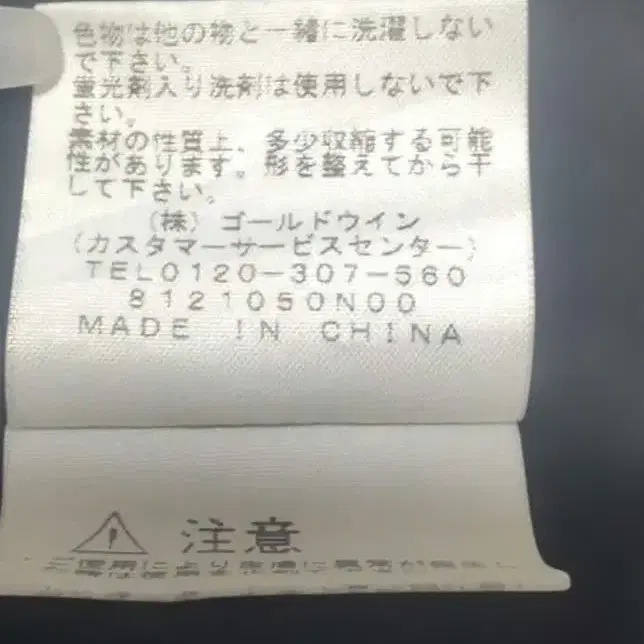 色物は他の物と一緒に洗濯しない
で下さい。
蛍光剤入り洗剤は使用しないで下
さい。
素材の性質上、多少収縮する可能
性があります。形を整えてから干
して下さい。
(株) ゴールドウイン
(カスタマーサービスセンター)
TEL0120-307-560
8121050N00
MADE IN CHINA
注意